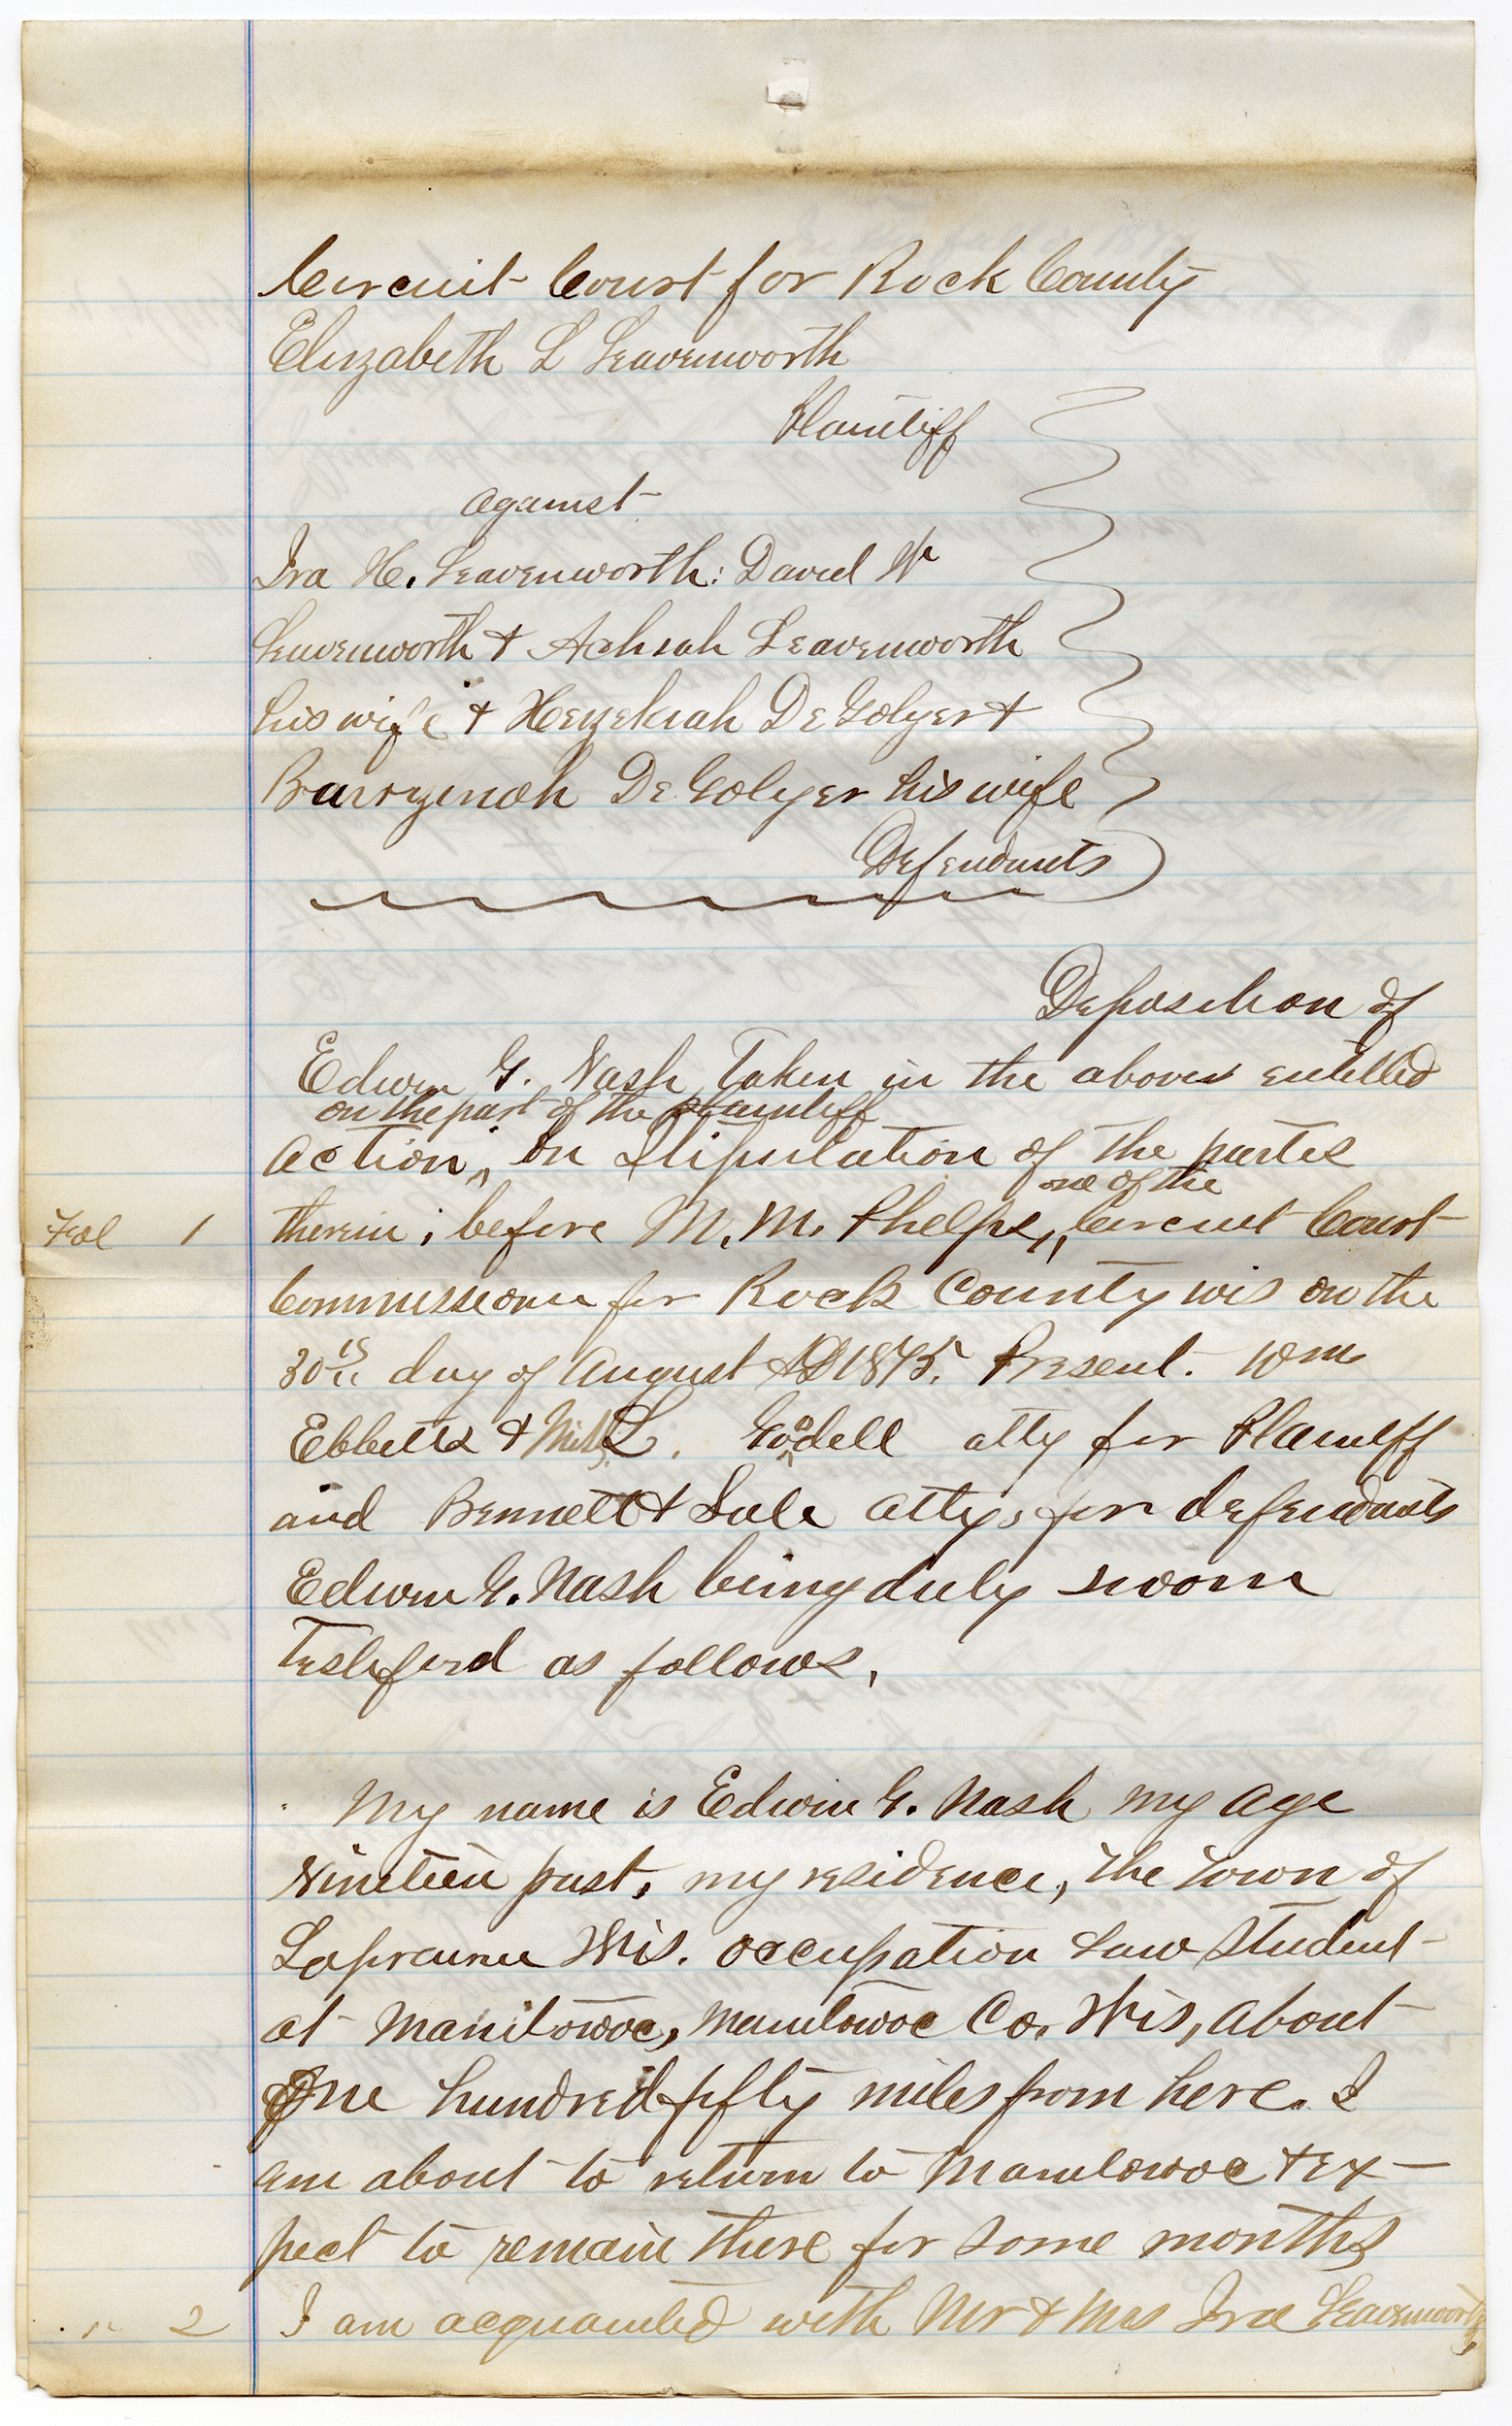 Circuit Court for Rock County
Elizabeth L Leavenworth
Plaintiff
against
Ira H. Leavenworth: David W
Leavenworth & Achsah Leavenworth
his wife & Hezekiah DeGolyer &
Barrzenah DeGolyer his wife
Defendants
Deposition of
Edwin G. Nash Taken in the above entitled
on the part of the plaintiff
action, on Stipulation of the parties
one of the
Fol 1 therein, before M. M. Phelps, Circuit Court
Commissioner for Rock County wis on the
30th day of August AD 1875. Present. Wm
Ebbetts & Miss L. Goodell atty for Plaintiff
and Bennett & Sale attys, for defendants
Edwin G. Nash being duly sworn
Testified as follows,
My name is Edwin G. Nash my age
Nineteen past, my residence, the Town of
Laprairie Wis. occupation Law Student
at Manitowoc, Manitowoc Co. Wis, about
One hundred fifty miles from here. I
am about to return to Manitowoc & ex-
pect to remain there for some months
" 2 I am acquainted with Mr & Mrs Ira Leavenworth,